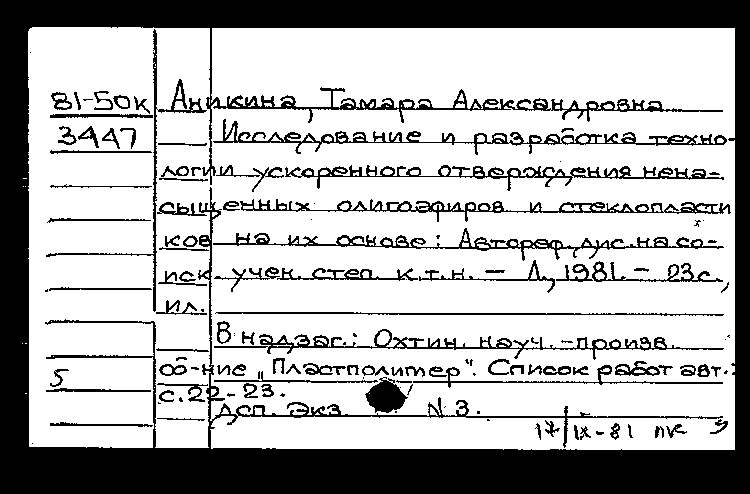 81-50к Аникина, Тамара Александровна
3447 Исследование и разработка техно-
логии ускоренного отверждения нена-
сыщенных олигоэфиров и стеклопласти
ков на их основе: Автореф. дис. на со-
иск. учен. степ. к.т.н. — Л., 1981. — 23с.,
ил.
В надзаг.: Охтин. науч.-произв.
5 об-ние „Пластполимер". Список работ авт.:
с.22-23.
Дсп. Экз. N 3.
17/IX-81